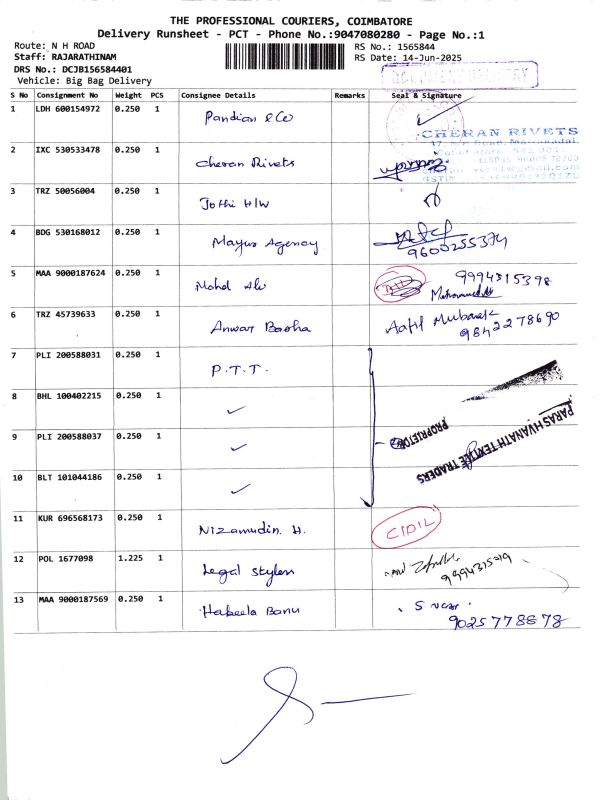 THE PROFESSIONAL COURIERS, COIMBATORE
Delivery Runsheet - PCT - Phone No.:9047080280 - Page No.:1
Route: N H ROAD
Staff: RAJARATHINAM
DRS No.: DCJB156584401
Vehicle: Big Bag Delivery
RS No.: 1565844
RS Date: 14-Jun-2025
S No Consignment No Weight PCS Consignee Details Remarks Seal & Signature
1 LDH 600154972 0.250 1 Pandian & Co
CHERAN RIVETS
2 IXC 530533478 0.250 1 Cheran Rivets
3 TRZ 50056004 0.250 1 Jothi H/W
4 BDG 530168012 0.250 1 Mayur Agency 9600255374
5 MAA 9000187624 0.250 1 Mohd Ali 9994315398
Mohammed Ali
6 TRZ 45739633 0.250 1 Anwar Basha Aafil Mubarak
9842278690
7 PLI 200588031 0.250 1 P.T.T.
8 BHL 100402215 0.250 1 ✓
9 PLI 200588037 0.250 1 ✓
PARASHWANATH TEXTILE TRADERS
PROPRIETOR
10 BLT 101044186 0.250 1 ✓
11 KUR 696568173 0.250 1 Nizamudin. H.
12 POL 1677098 1.225 1 Legal Stylen
13 MAA 9000187569 0.250 1 Habeela Banu
9025778678